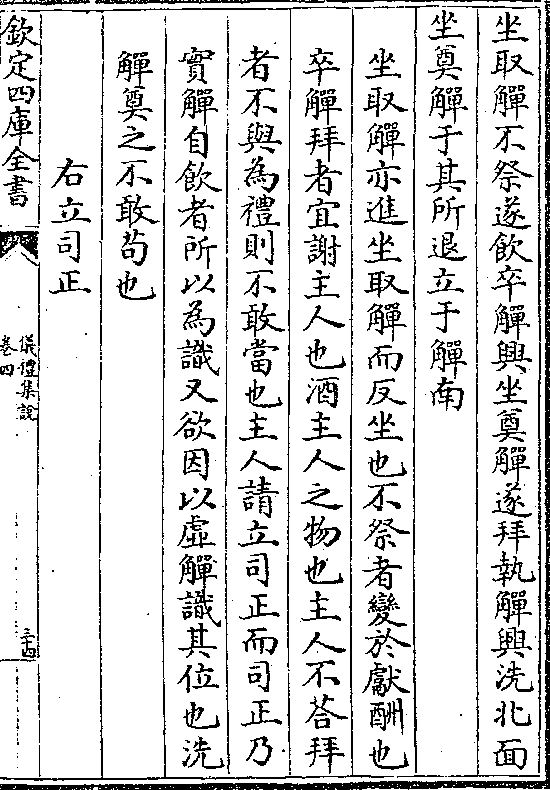 坐取觶不祭遂飲卒觶興坐奠觶遂拜執觶興洗北面
坐奠觶于其所退立于觶南
坐取觶亦進坐取觶而反坐也不祭者變於獻酬也
卒觶拜者宜謝主人也酒主人之物也主人不荅拜
者不與為禮則不敢當也主人請立司正而司正乃
實觶自飲者所以為識又欲因以虛觶識其位也洗
觶奠之不敢苟也
右立司正
欽定四庫全書
儀禮集說
卷四
三十四